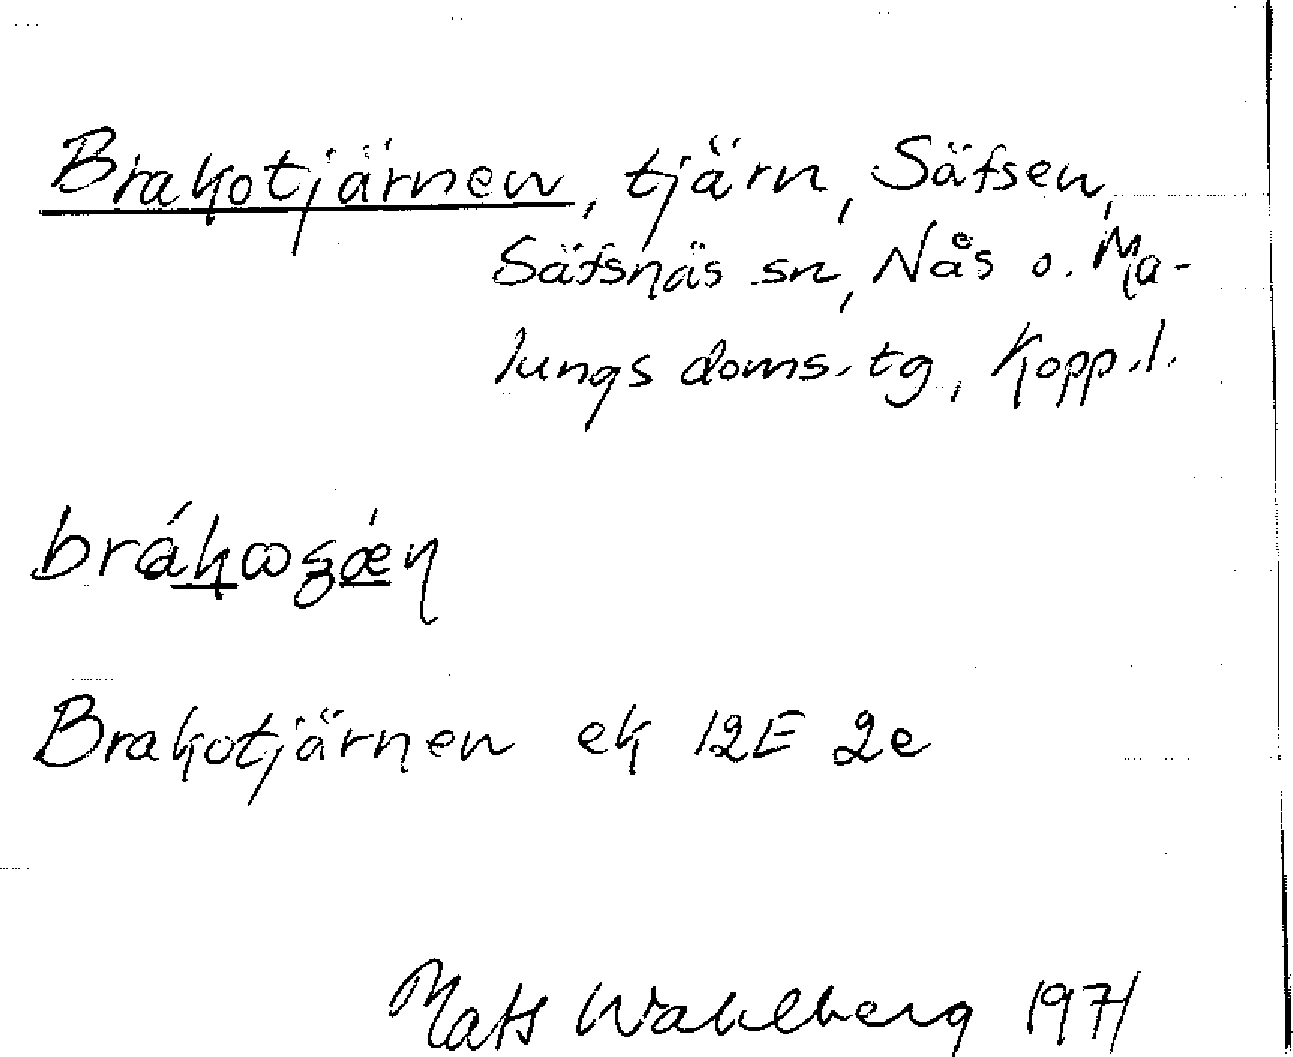 Brakotjärnen, tjärn, Säfsen,
Säfsnäs sn, Nås o. Ma-
lungs doms. tg, Kopp.l.
Brakotjärnen ek 12E 2e
Mats Wahlberg 1971